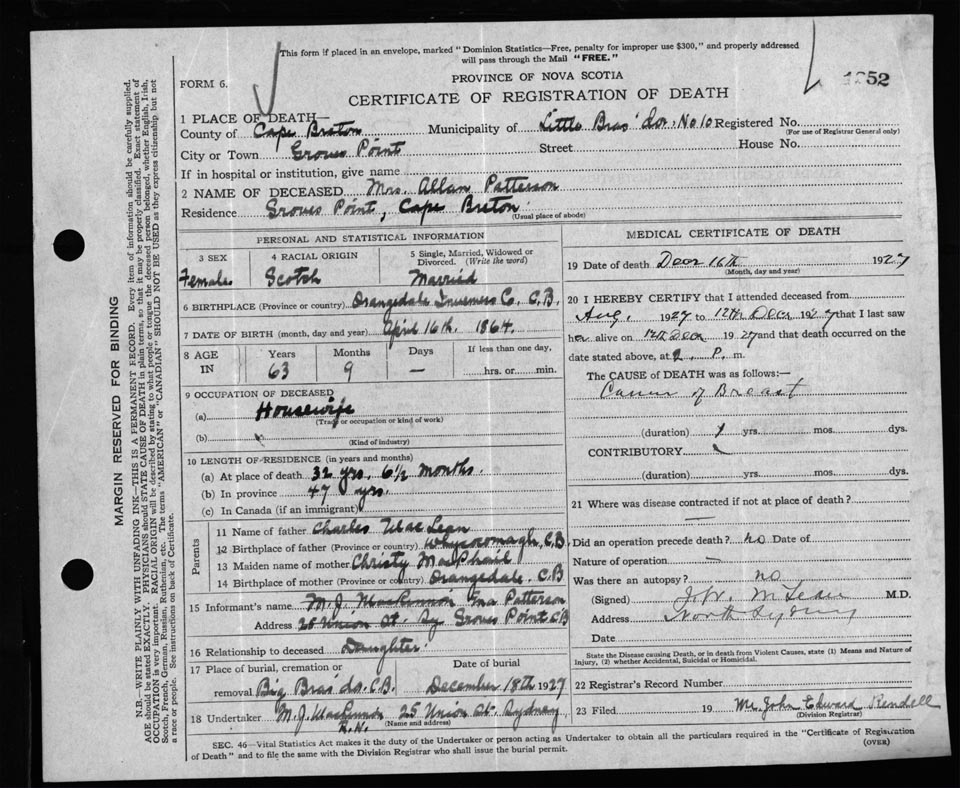 This form if placed in an envelope, marked "Dominion Statistics—Free, penalty for improper use $300," and properly addressed
will pass through the Mail "FREE."
FORM 6.
PROVINCE OF NOVA SCOTIA
1252
CERTIFICATE OF REGISTRATION OF DEATH
1 PLACE OF DEATH—
County of Cape Breton Municipality of Little Bras'dor. No 10 Registered No.
(For use of Registrar General only)
City or Town Groves Point Street House No.
If in hospital or institution, give name
2 NAME OF DECEASED Mrs. Allan Patterson
Residence Groves Point, Cape Breton
(Usual place of abode)
PERSONAL AND STATISTICAL INFORMATION
3 SEX 4 RACIAL ORIGIN 5 Single, Married, Widowed or Divorced. (Write the word)
Female Scotch Married
6 BIRTHPLACE (Province or country) Orangedale Inverness Co. C.B.
7 DATE OF BIRTH (month, day and year) April 16th. 1864.
8 AGE IN Years Months Days If less than one day,
63 9 — hrs. or min.
9 OCCUPATION OF DECEASED
(a) Housewife
(Trade or occupation or kind of work)
(b)
(Kind of industry)
10 LENGTH OF RESIDENCE (in years and months)
(a) At place of death 32 yrs. 6½ months.
(b) In province 47 yrs.
(c) In Canada (if an immigrant)
Parents
11 Name of father Charles MacLean
12 Birthplace of father (Province or country) Whycocomagh, C.B.
13 Maiden name of mother Christy MacPhail
14 Birthplace of mother (Province or country) Orangedale. C.B
15 Informant's name M.J. MacKinnon Ena Patterson
Address 25 Union St. Sy. Groves Point C.B
16 Relationship to deceased Daughter
17 Place of burial, cremation or Date of burial
removal Big Bras'do. C.B. December 18th 1927
18 Undertaker M.J. MacKinnon 25 Union St. Sydney
R.N.
(Name and address)
MEDICAL CERTIFICATE OF DEATH
19 Date of death Decr 16th 1927
(Month, day and year)
20 I HEREBY CERTIFY that I attended deceased from
Aug, 1927 to 12th Decr 1927 that I last saw
her alive on 12th Decr 1927 and that death occurred on the
date stated above, at 2 P. m.
The CAUSE of DEATH was as follows:—
Cancer of Breast
(duration) 1 yrs. mos. dys.
CONTRIBUTORY
(duration) yrs. mos. dys.
21 Where was disease contracted if not at place of death?
—
Did an operation precede death? no Date of
Nature of operation —
Was there an autopsy? no
(Signed) J.W. McLean M.D.
Address North Sydney
Date
State the Disease causing Death, or in death from Violent Causes, state (1) Means and Nature of
Injury, (2) whether Accidental, Suicidal or Homicidal.
22 Registrar's Record Number
23 Filed 19 Mr John Edward Rendell
(Division Registrar)
SEC. 46—Vital Statistics Act makes it the duty of the Undertaker or person acting as Undertaker to obtain all the particulars required in the "Certificate of Registration
of Death" and to file the same with the Division Registrar who shall issue the burial permit.
(OVER)
MARGIN RESERVED FOR BINDING
N.B.—WRITE PLAINLY WITH UNFADING INK—THIS IS A PERMANENT RECORD. Every item of information should be carefully supplied.
AGE should be stated EXACTLY. PHYSICIANS should STATE CAUSE OF DEATH in plain terms, so that it may be properly classified. Exact statement of
OCCUPATION is very important. RACIAL ORIGIN will be described by stating to what people or tongue the deceased person belonged, whether English, Irish,
Scotch, French, German, Russian, Ruthenian, etc. The terms "AMERICAN" or "CANADIAN" SHOULD NOT BE USED as they express citizenship but not
a race or people. See instructions on back of Certificate.